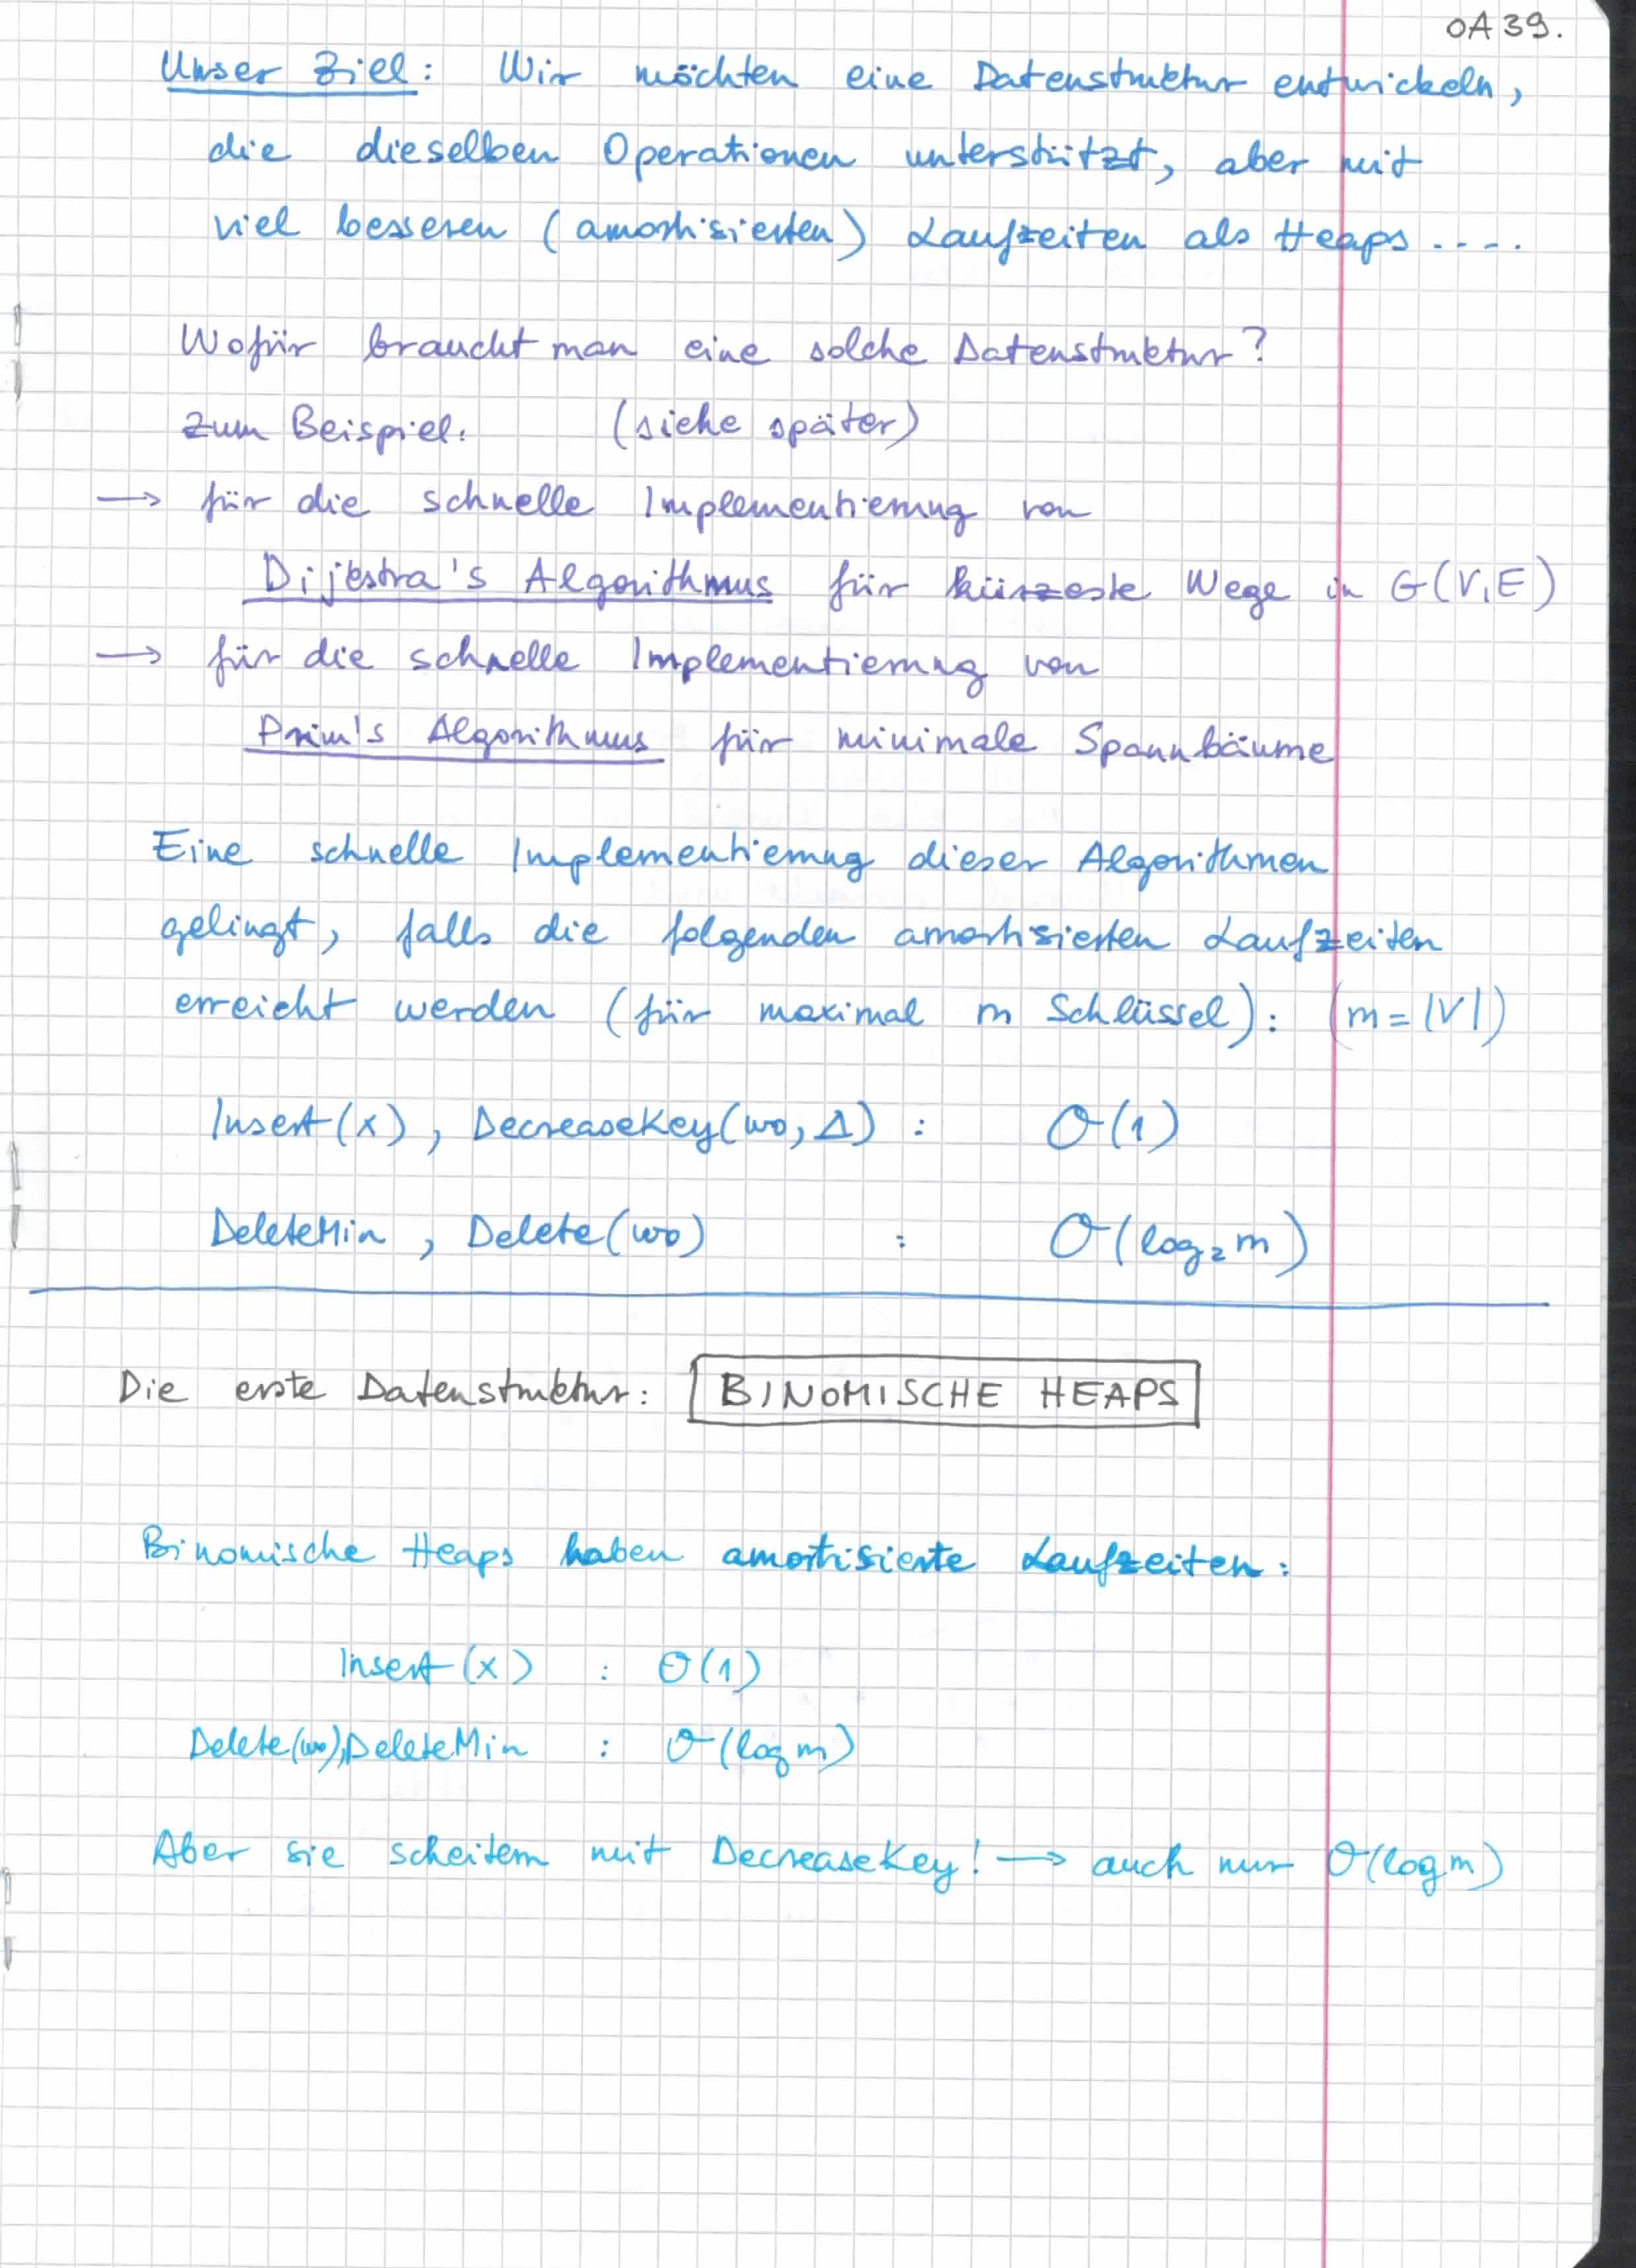 OA 39.
Unser Ziel: Wir möchten eine Datenstruktur entwickeln,
die dieselben Operationen unterstützt, aber mit
viel besseren (amortisierten) Laufzeiten als Heaps ....
Wofür braucht man eine solche Datenstruktur?
Zum Beispiel: (siehe später)
→ für die schnelle Implementierung von
Dijkstra's Algorithmus für kürzeste Wege in G(V,E)
→ für die schnelle Implementierung von
Prim's Algorithmus für minimale Spannbäume
Eine schnelle Implementierung dieser Algorithmen
gelingt, falls die folgenden amortisierten Laufzeiten
erreicht werden (für maximal m Schlüssel): (m = |V|)
Insert(x), DecreaseKey(wo, Δ) : O(1)
DeleteMin, Delete(wo) : O(log₂ m)
Die erste Datenstruktur: BINOMISCHE HEAPS
Binomische Heaps haben amortisierte Laufzeiten:
Insert(x) : O(1)
Delete(wo), DeleteMin : O(log m)
Aber sie scheitern mit DecreaseKey! → auch nur O(log m)